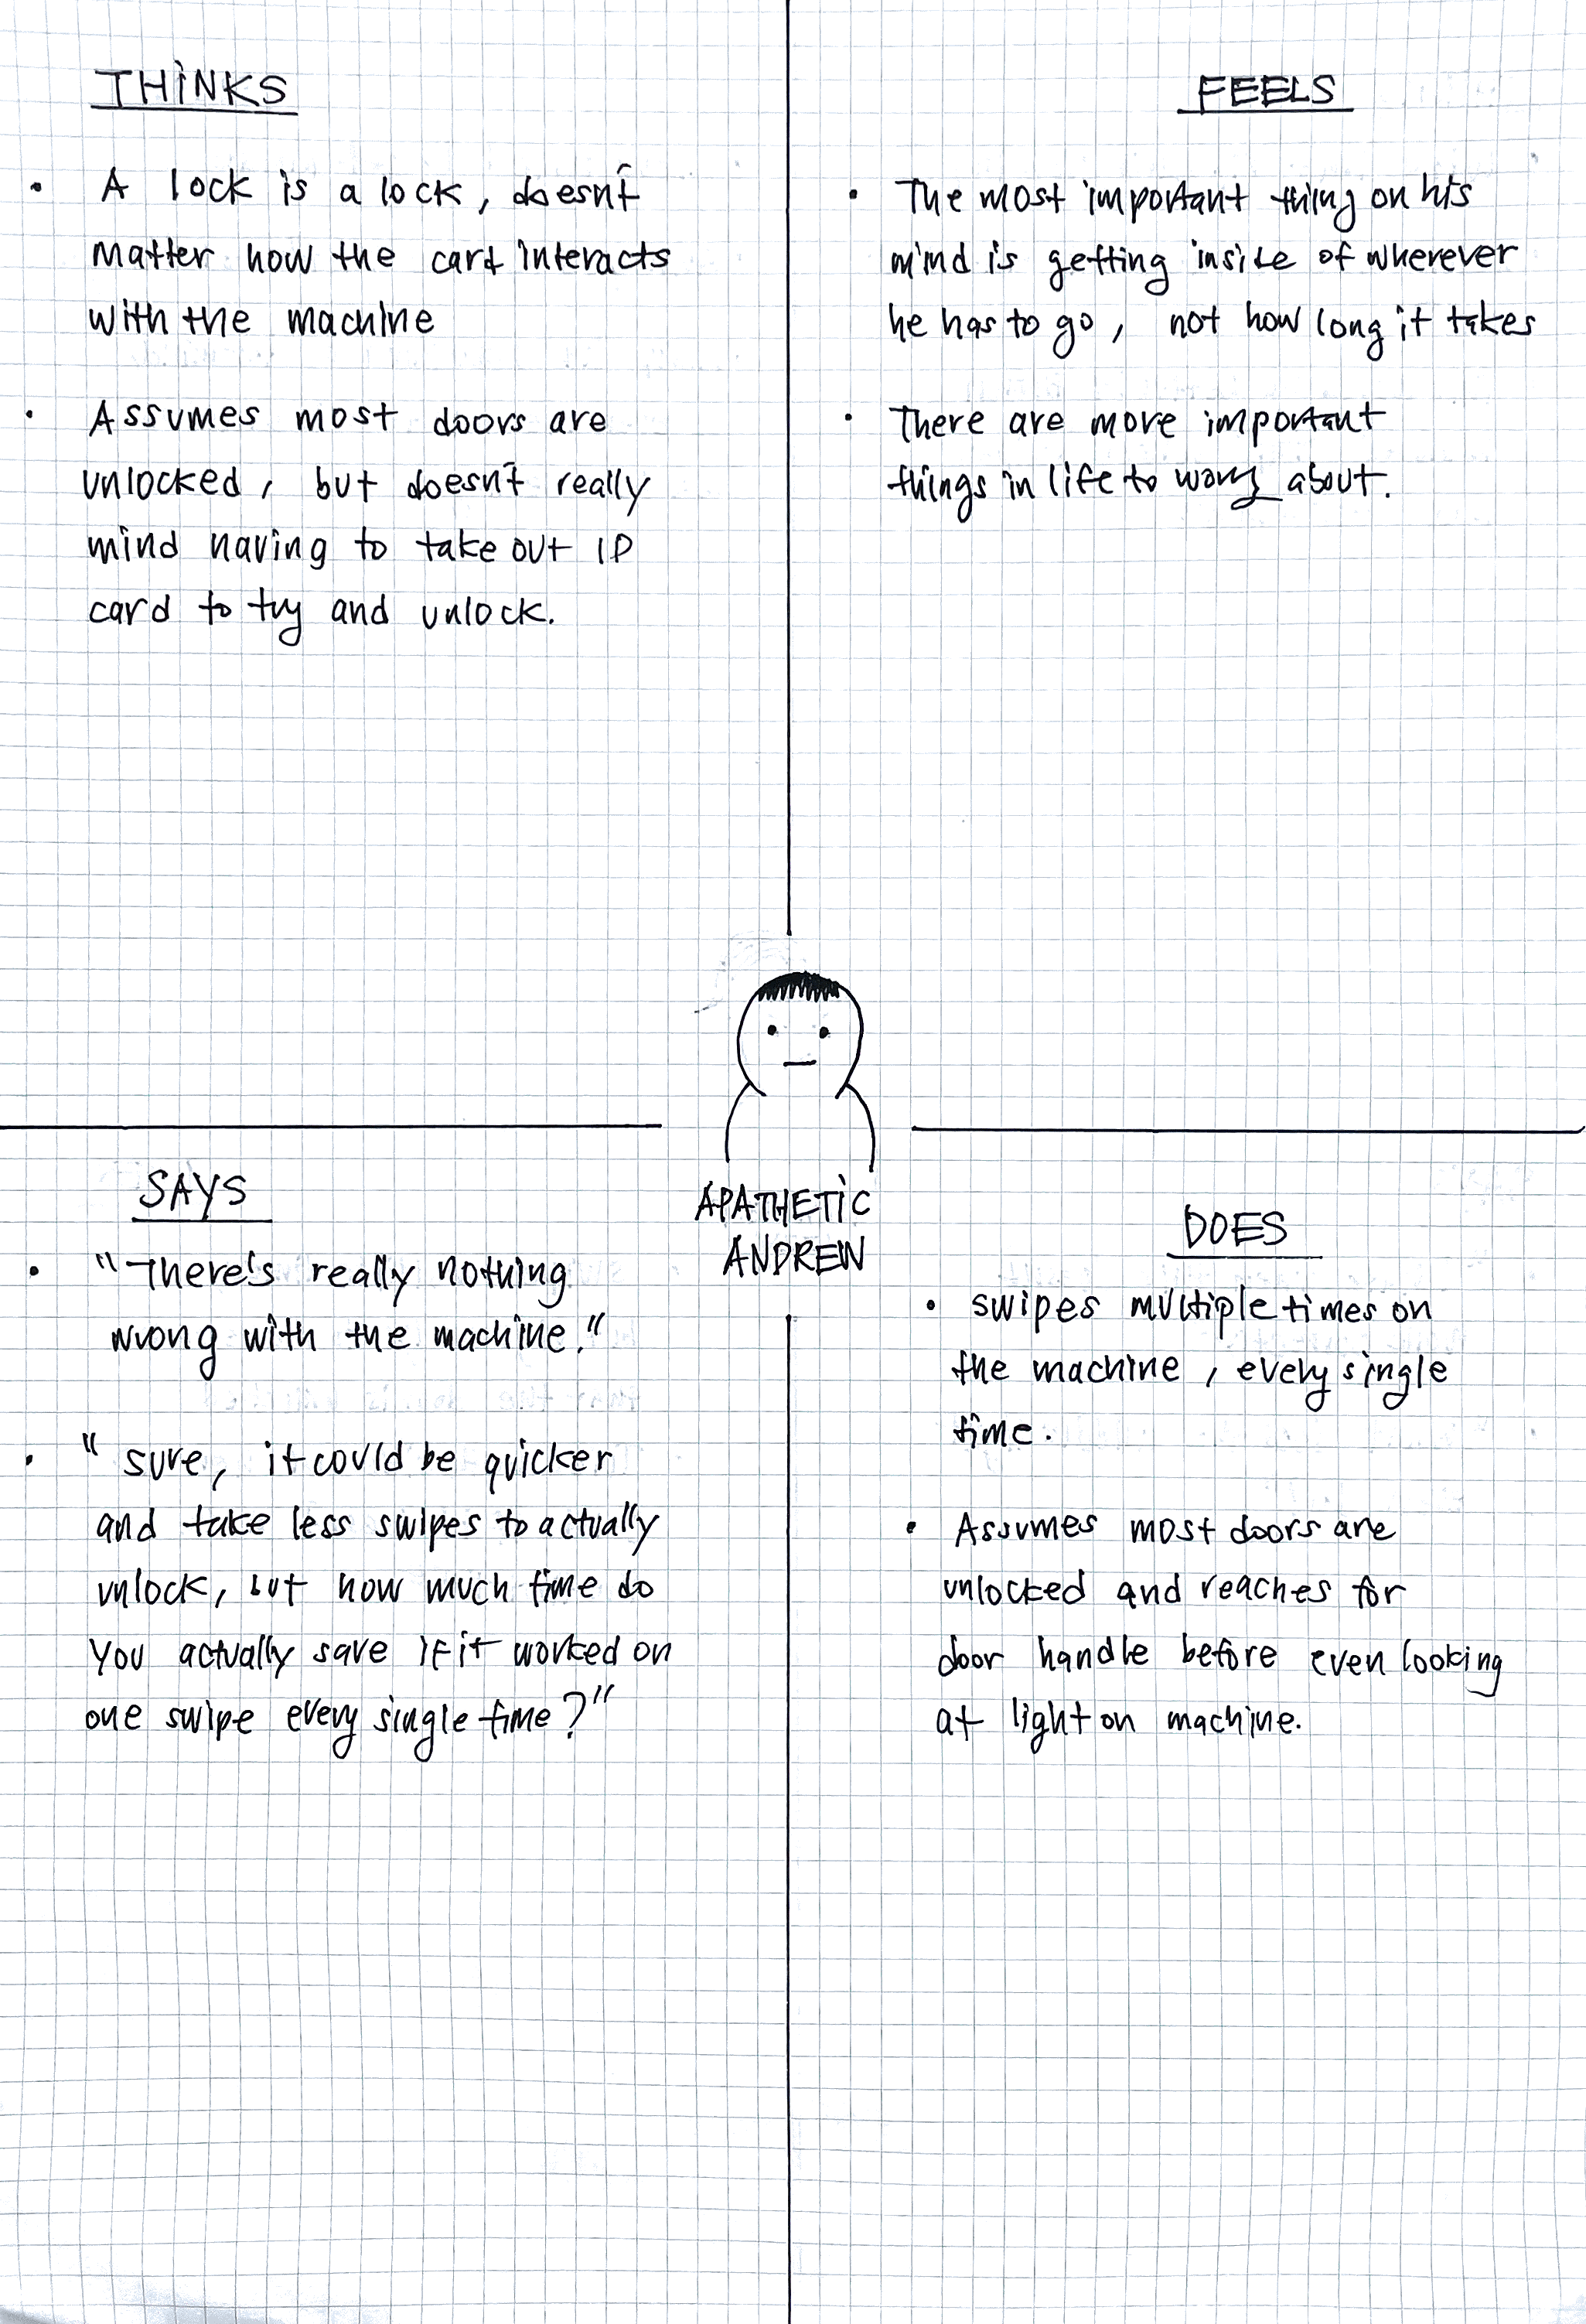 THINKS
• A lock is a lock, doesn't
matter how the card interacts
with the machine
• Assumes most doors are
unlocked, but doesn't really
mind having to take out ID
card to try and unlock.
FEELS
• The most important thing on his
mind is getting inside of wherever
he has to go, not how long it takes
• There are more important
things in life to worry about.
APATHETIC
ANDREW
SAYS
• "There's really nothing
wrong with the machine."
• "sure, it could be quicker
and take less swipes to actually
unlock, but how much time do
you actually save if it worked on
one swipe every single time?"
DOES
• swipes multiple times on
the machine, every single
time.
• Assumes most doors are
unlocked and reaches for
door handle before even looking
at light on machine.